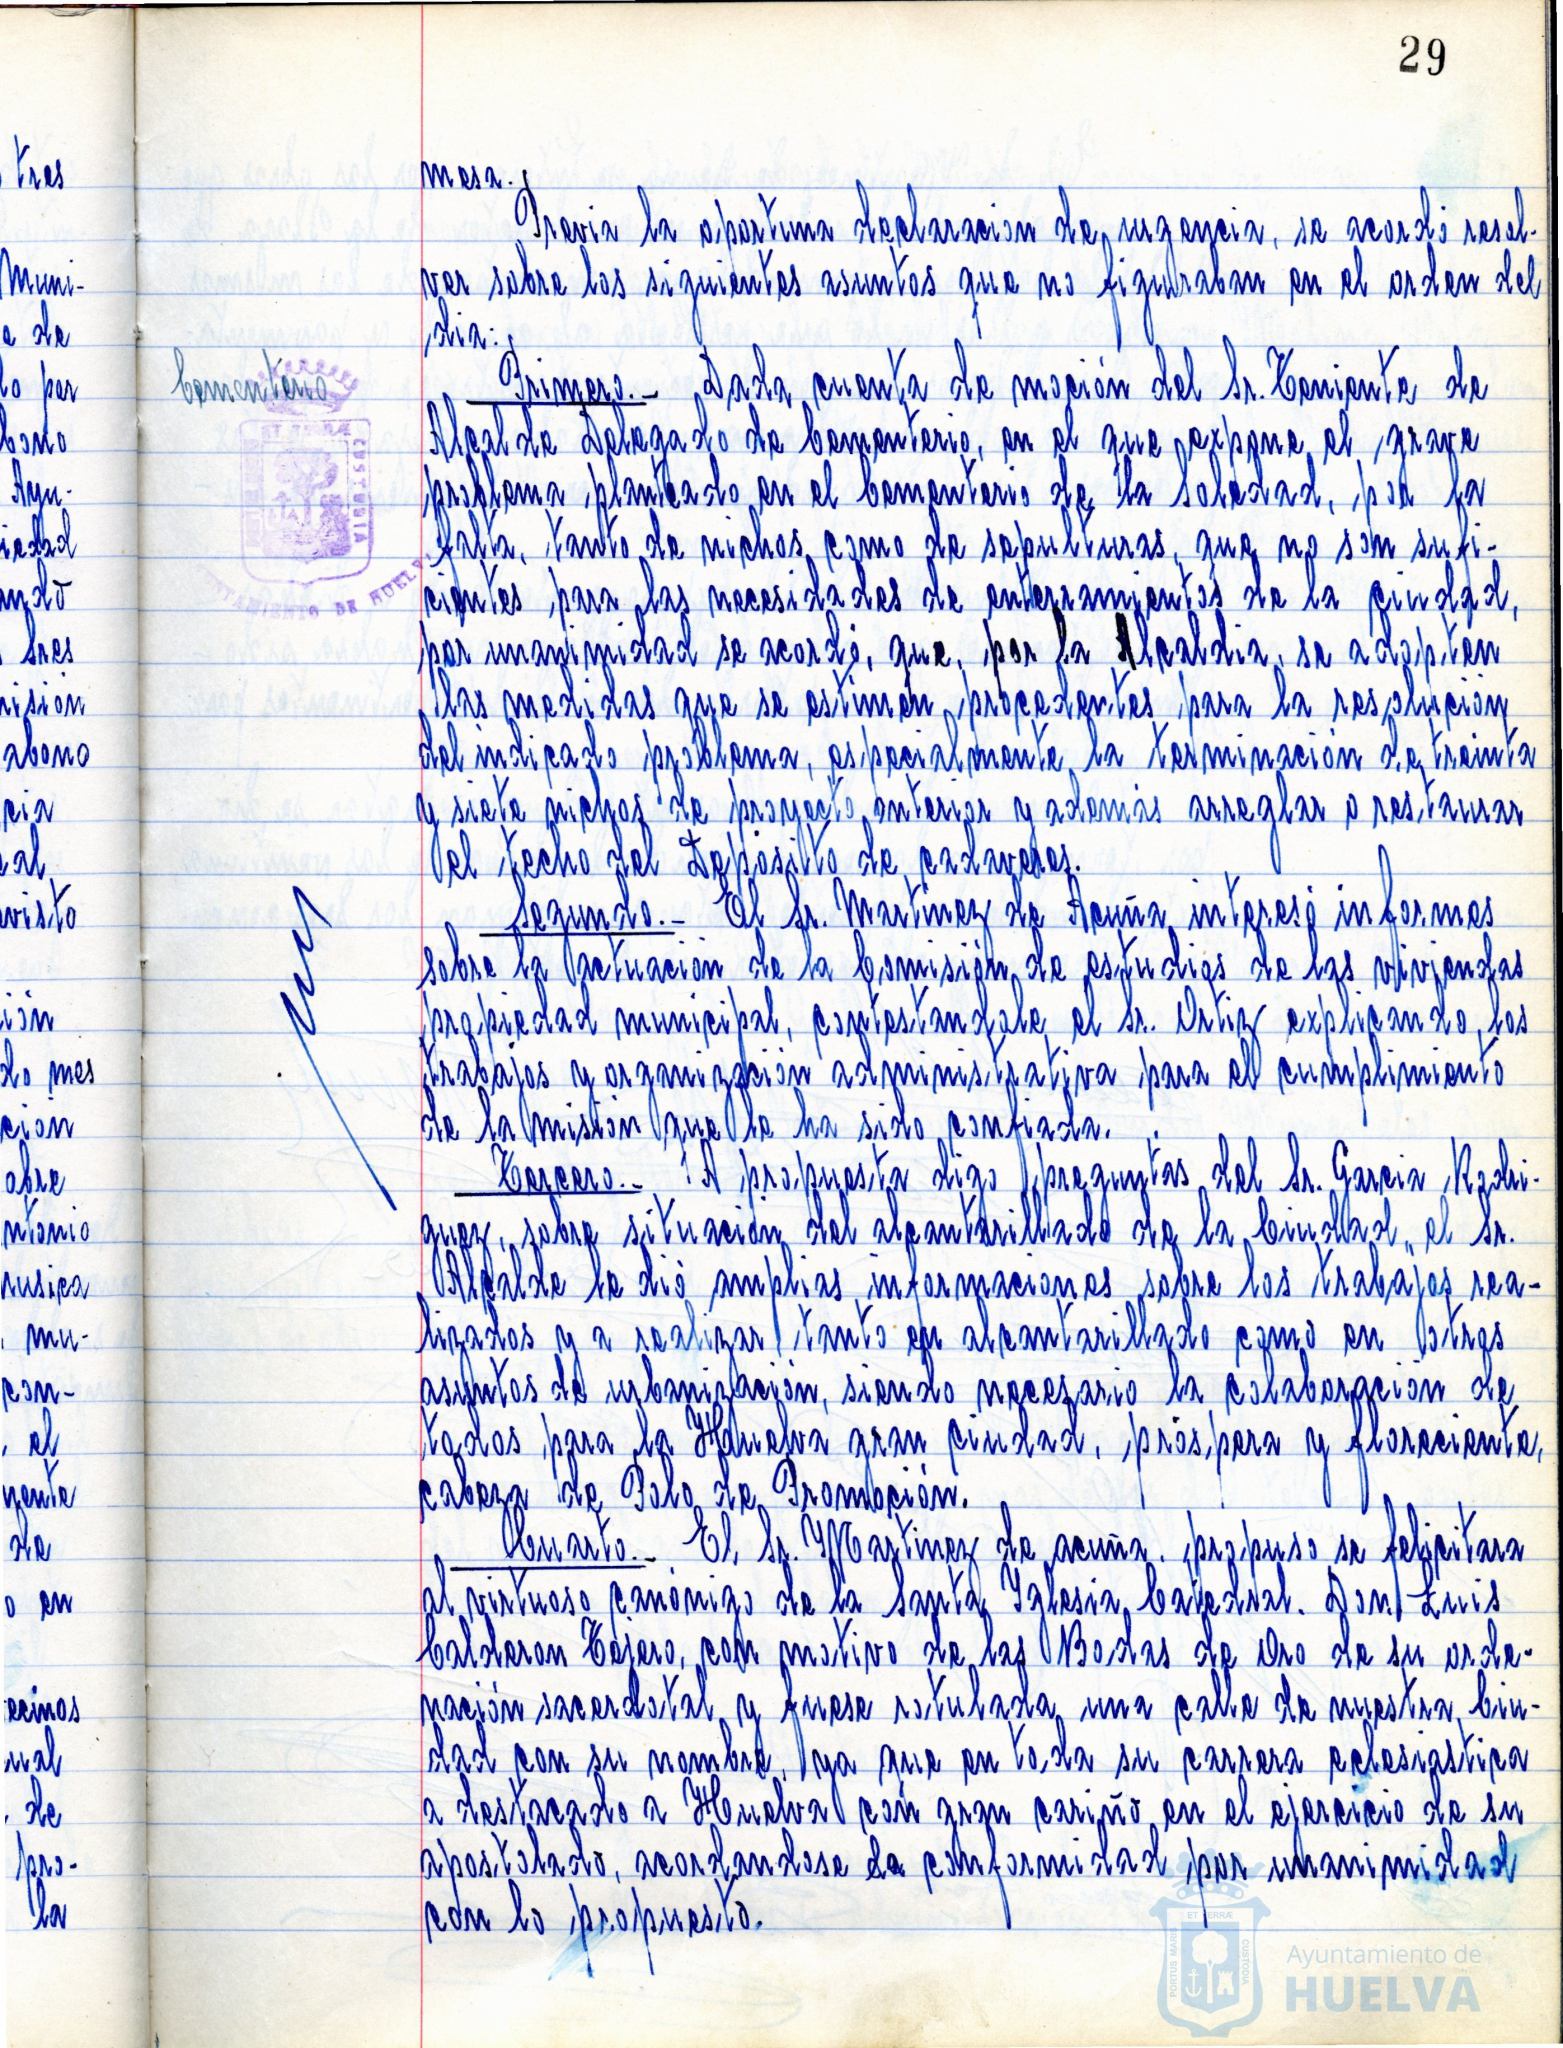 29
mesa.
Previa la oportuna declaracion de urgencia, se acordó resol-
ver sobre los siguientes asuntos que no figuraban en el orden del
dia:
Cementerio
Primero.- Dada cuenta de moción del Sr. Teniente de
Alcalde Delegado de Cementerio, en el que expone el grave
problema planteado en el Cementerio de la Soledad, por la
falta, tanto de nichos como de sepulturas, que no son sufi-
cientes para las necesidades de enterramientos de la ciudad,
por unanimidad se acordó, que, por la Alcaldia, se adopten
las medidas que se estimen procedentes para la resolución
del indicado problema, especialmente la terminación de treinta
y siete nichos de proyecto anterior y además arreglar o restaurar
el techo del Depósito de cadaveres.
Segundo.- El Sr. Martinez de Acuña interesó informes
sobre la actuación de la Comisión de estudios de las viviendas
propiedad municipal, contestandole el Sr. Ortiz explicando los
trabajos y organización administrativa para el cumplimiento
de la misión que le ha sido confiada.
Tercero.- A propuesta digo preguntas del Sr. Garcia Rodri-
guez, sobre situación del alcantarillado de la Ciudad, el Sr.
Alcalde le dió amplias informaciones sobre los trabajos rea-
lizados y a realizar, tanto en alcantarillado como en otros
asuntos de urbanización, siendo necesario la colaboración de
todos para la Huelva gran ciudad, prospera y floreciente,
cabeza de Polo de Promoción.
Cuarto.- El Sr. Martinez de acuña. propuso se felicitara
al virtuoso canónigo de la Santa Iglesia Catedral. Don Luis
Calderon Tejero, con motivo de las Bodas de Oro de su orde-
nación sacerdotal y fuese rotulada una calle de nuestra Ciu-
dad con su nombre, ya que en toda su carrera eclesiastica
a destacado a Huelva con gran cariño en el ejercicio de su
apostolado, acordandose la conformidad por unanimidad
con lo propuesto.
tres
Muni-
e de
do por
bono
Ayu-
iedad
ando
Sres
misión
abono
cia
al
visto
ión
do mes
cion
obre
ntonio
musica
mu-
con-
, el
mente
de
o en
ecinos
ual
, de
pro-
la
ET TERRÆ CUSTODIA
AYUNTAMIENTO DE HUELVA
PORTUS MARIS
ET TERRÆ
CUSTODIA
Ayuntamiento de
HUELVA